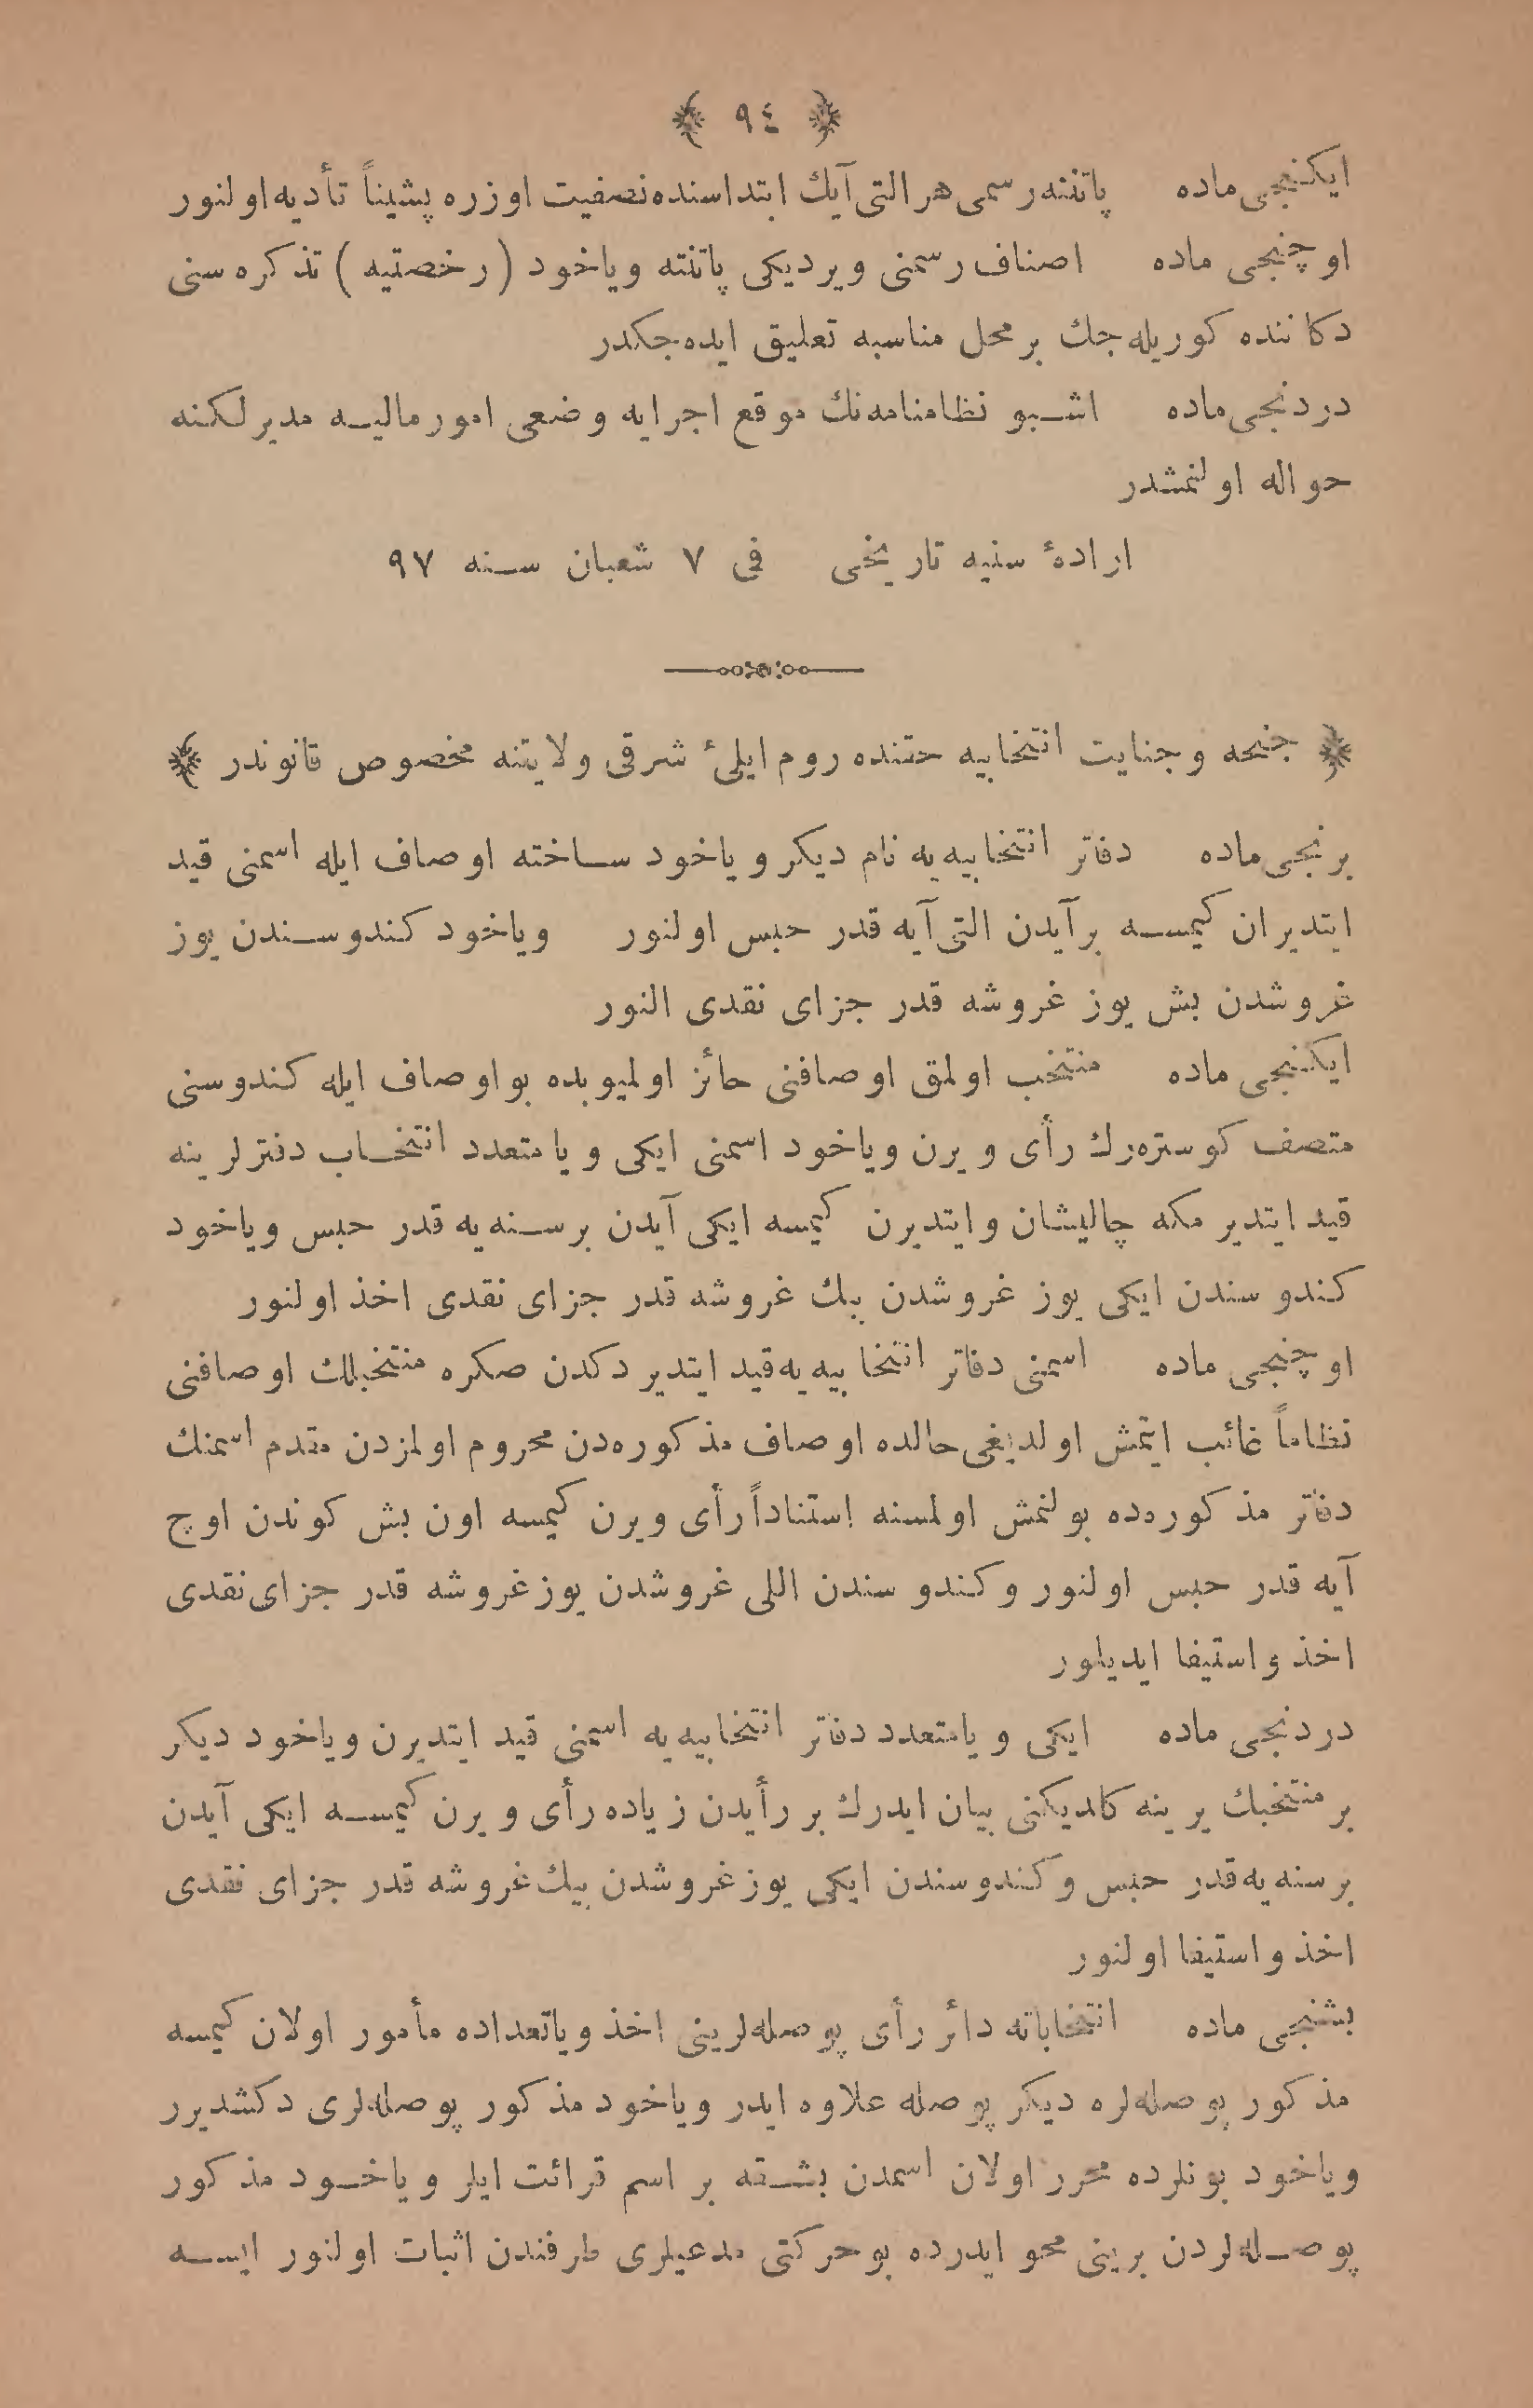 ﴿ ٩٤ ﴾
ایكنجی ماده پاتنته رسمی هر التی آیك ابتداسنده نصفیت اوزره پشیناً تأدیه اولنور
اوچنجی ماده اصناف رسمنی ویردیكی پاتنته ویاخود (رخصتیه) تذكره سنی
دكاننده كوریله جك بر محل مناسبه تعلیق ایده جكدر
دردنجی ماده اشبو نظامنامه نك موقع اجرایه وضعی امور مالیه مدیرلكنه
حواله اولنمشدر
ارادهٔ سنیه تاریخی فی ٧ شعبان سنه ٩٧
﴿ جنحه وجنایت انتخابیه حقنده روم ایلیٔ شرقی ولایتنه مخصوص قانوندر ﴾
برنجی ماده دفاتر انتخابیه یه نام دیكر ویاخود ساخته اوصاف ایله اسمنی قید
ایتدیران كیمسه بر آیدن التی آیه قدر حبس اولنور ویاخود كندوسندن یوز
غروشدن بش یوز غروشه قدر جزای نقدی النور
ایكنجی ماده منتخب اولمق اوصافنی حائز اولمیوبده بو اوصاف ایله كندوسنی
متصف كوستره رك رأی ویرن ویاخود اسمنی ایكی ویا متعدد انتخاب دفترلرینه
قید ایتدیرمكه چالیشان وایتدیرن كیمسه ایكی آیدن بر سنه یه قدر حبس ویاخود
كندوسندن ایكی یوز غروشدن بیك غروشه قدر جزای نقدی اخذ اولنور
اوچنجی ماده اسمنی دفاتر انتخابیه یه قید ایتدیردكدن صكره منتخبلك اوصافنی
نظاماً غائب ایتمش اولدیغی حالده اوصاف مذكوره دن محروم اولمزدن مقدم اسمنك
دفاتر مذكوره ده بولنمش اولمسنه استناداً رأی ویرن كیمسه اون بش كوندن اوچ
آیه قدر حبس اولنور وكندوسندن اللی غروشدن یوز غروشه قدر جزای نقدی
اخذ واستیفا ایدیلور
دردنجی ماده ایكی ویا متعدد دفاتر انتخابیه یه اسمنی قید ایتدیرن ویاخود دیكر
بر منتخبك یرینه كلدیكنی بیان ایدرك بر رأیدن زیاده رأی ویرن كیمسه ایكی آیدن
بر سنه یه قدر حبس وكندوسندن ایكی یوز غروشدن بیك غروشه قدر جزای نقدی
اخذ واستیفا اولنور
بشنجی ماده انتخاباته دائر رأی پوصله لرینی اخذ ویا تعداده مأمور اولان كیمسه
مذكور پوصله لره دیكر پوصله علاوه ایدر ویاخود مذكور پوصله لری دكشدیرر
ویاخود بونلرده محرر اولان اسمدن بشقه بر اسم قرائت ایلر ویاخود مذكور
پوصله لردن برینی محو ایدرده بو حركتی مدعیلری طرفندن اثبات اولنور ایسه